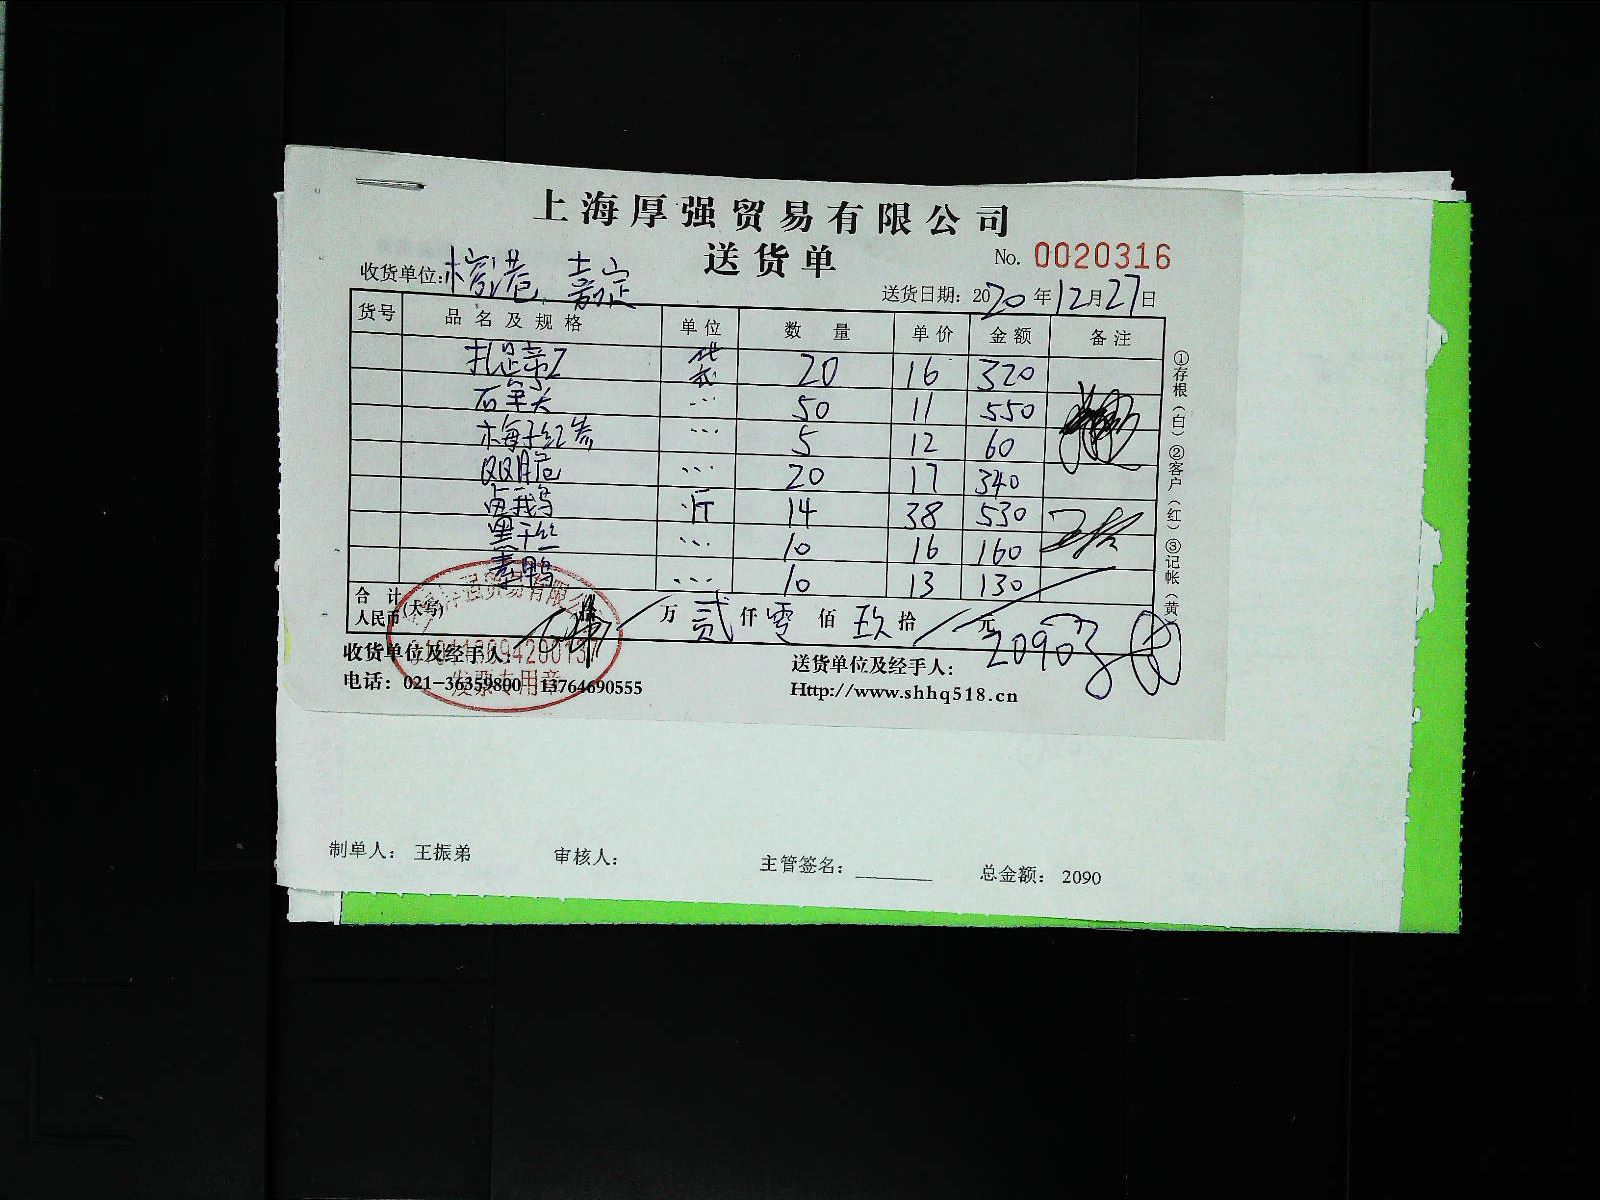 上海厚强贸易有限公司
送货单
No. 0020316
收货单位: 嘉定
送货日期: 2020年12月27日
货号 品名及规格 单位 数量 单价 金额 备注
扎蹄 袋 20 16 320
50 11 550
梅子红参 5 12 60
QQ脆 20 17 340
卤鹅 斤 14 38 530
黑千丝 10 16 160
素鸭 10 13 130
合计人民币(大写) 万 贰 仟 零 佰 玖 拾 元
2090
收货单位及经手人:
送货单位及经手人:
电话: 021-36359800 13764690555
Http://www.shhq518.cn
①存根(白)②客户(红)③记帐(黄)
发票专用章
制单人: 王振弟 审核人: 主管签名: 总金额: 2090